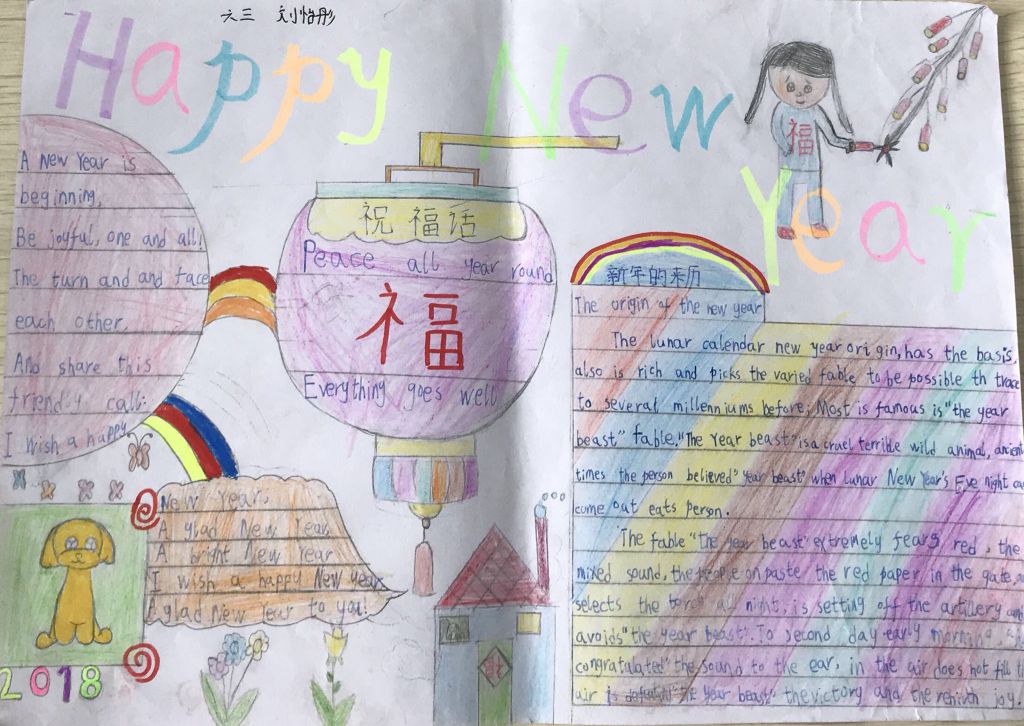 六三 刘怡彤
Happy New
Year
A New Year is
beginning,
Be joyful, one and all!
The turn and and face
each other,
And share this
friendly call:
I wish a happy
New Year,
A glad New Year,
A bright New Year
I wish a happy New year
A glad New Year to you!
2018
祝福话
Peace all year round
福
Everything goes well
福
新年的来历
The origin of the new year
The lunar calendar new year origin, has the basis,
also is rich and picks the varied fable to be possible th trace
to several millenniums before; Most is famous is "the year
beast" fable. "The Year beast" is a cruel terrible wild animal, ancient
times the person believed "year beast" when lunar New Year's Eve night can
come out eats person.
The fable "the year beast" extremely fears red, the
mixed sound, the people on paste the red paper in the gate,
selects the torch all night, is setting off the artillery
avoids "the year beast". To second day early morning
congratulated" the sound to the ear, in the air does not fill
air is "the year beast" the victory and the rebirth joy.